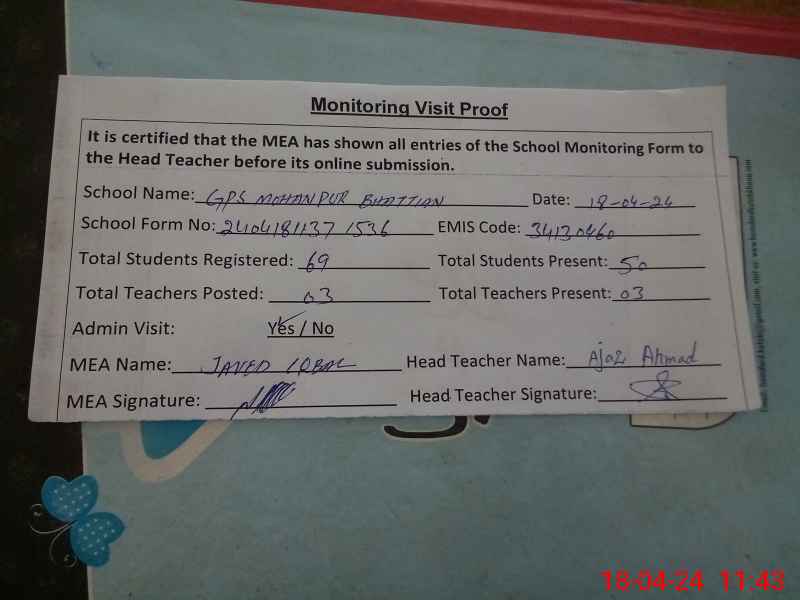 Monitoring Visit Proof
It is certified that the MEA has shown all entries of the School Monitoring Form to
the Head Teacher before its online submission.
School Name: GPS MOHANPUR BHATTIAN Date: 18-04-24
School Form No: 24041811371536 EMIS Code: 34130460
Total Students Registered: 69 Total Students Present: 50
Total Teachers Posted: 03 Total Teachers Present: 03
Admin Visit: Yes / No
MEA Name: JAVED IQBAL Head Teacher Name: Ajaz Ahmad
MEA Signature: Head Teacher Signature:
18-04-24 11:43